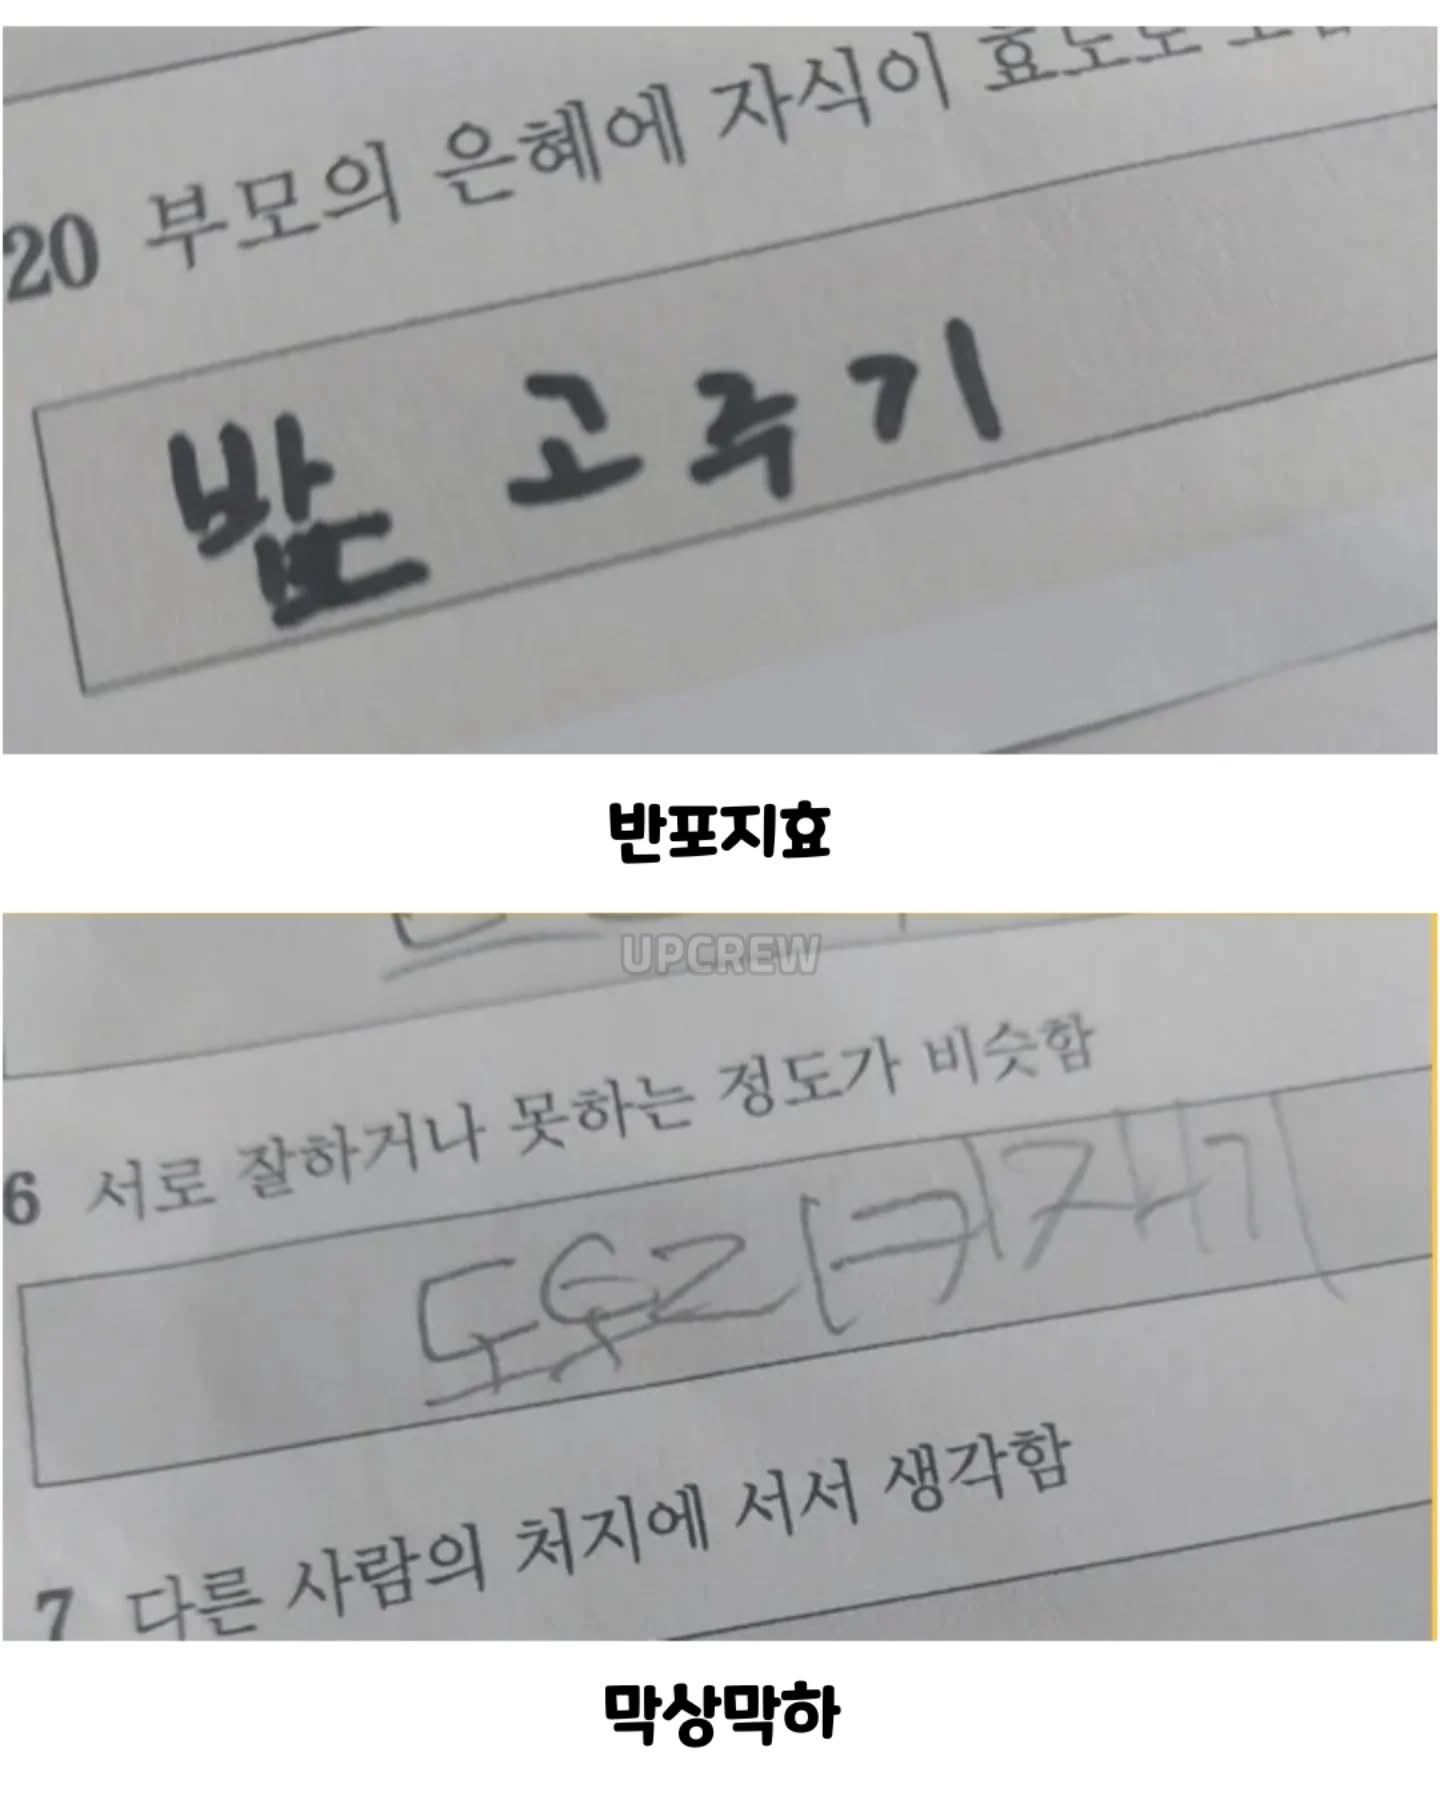 20 부모의 은혜에 자식이 효도로
고주기
반포지효
UPCREW
6 서로 잘하거나 못하는 정도가 비슷함
키재기
7 다른 사람의 처지에 서서 생각함
막상막하